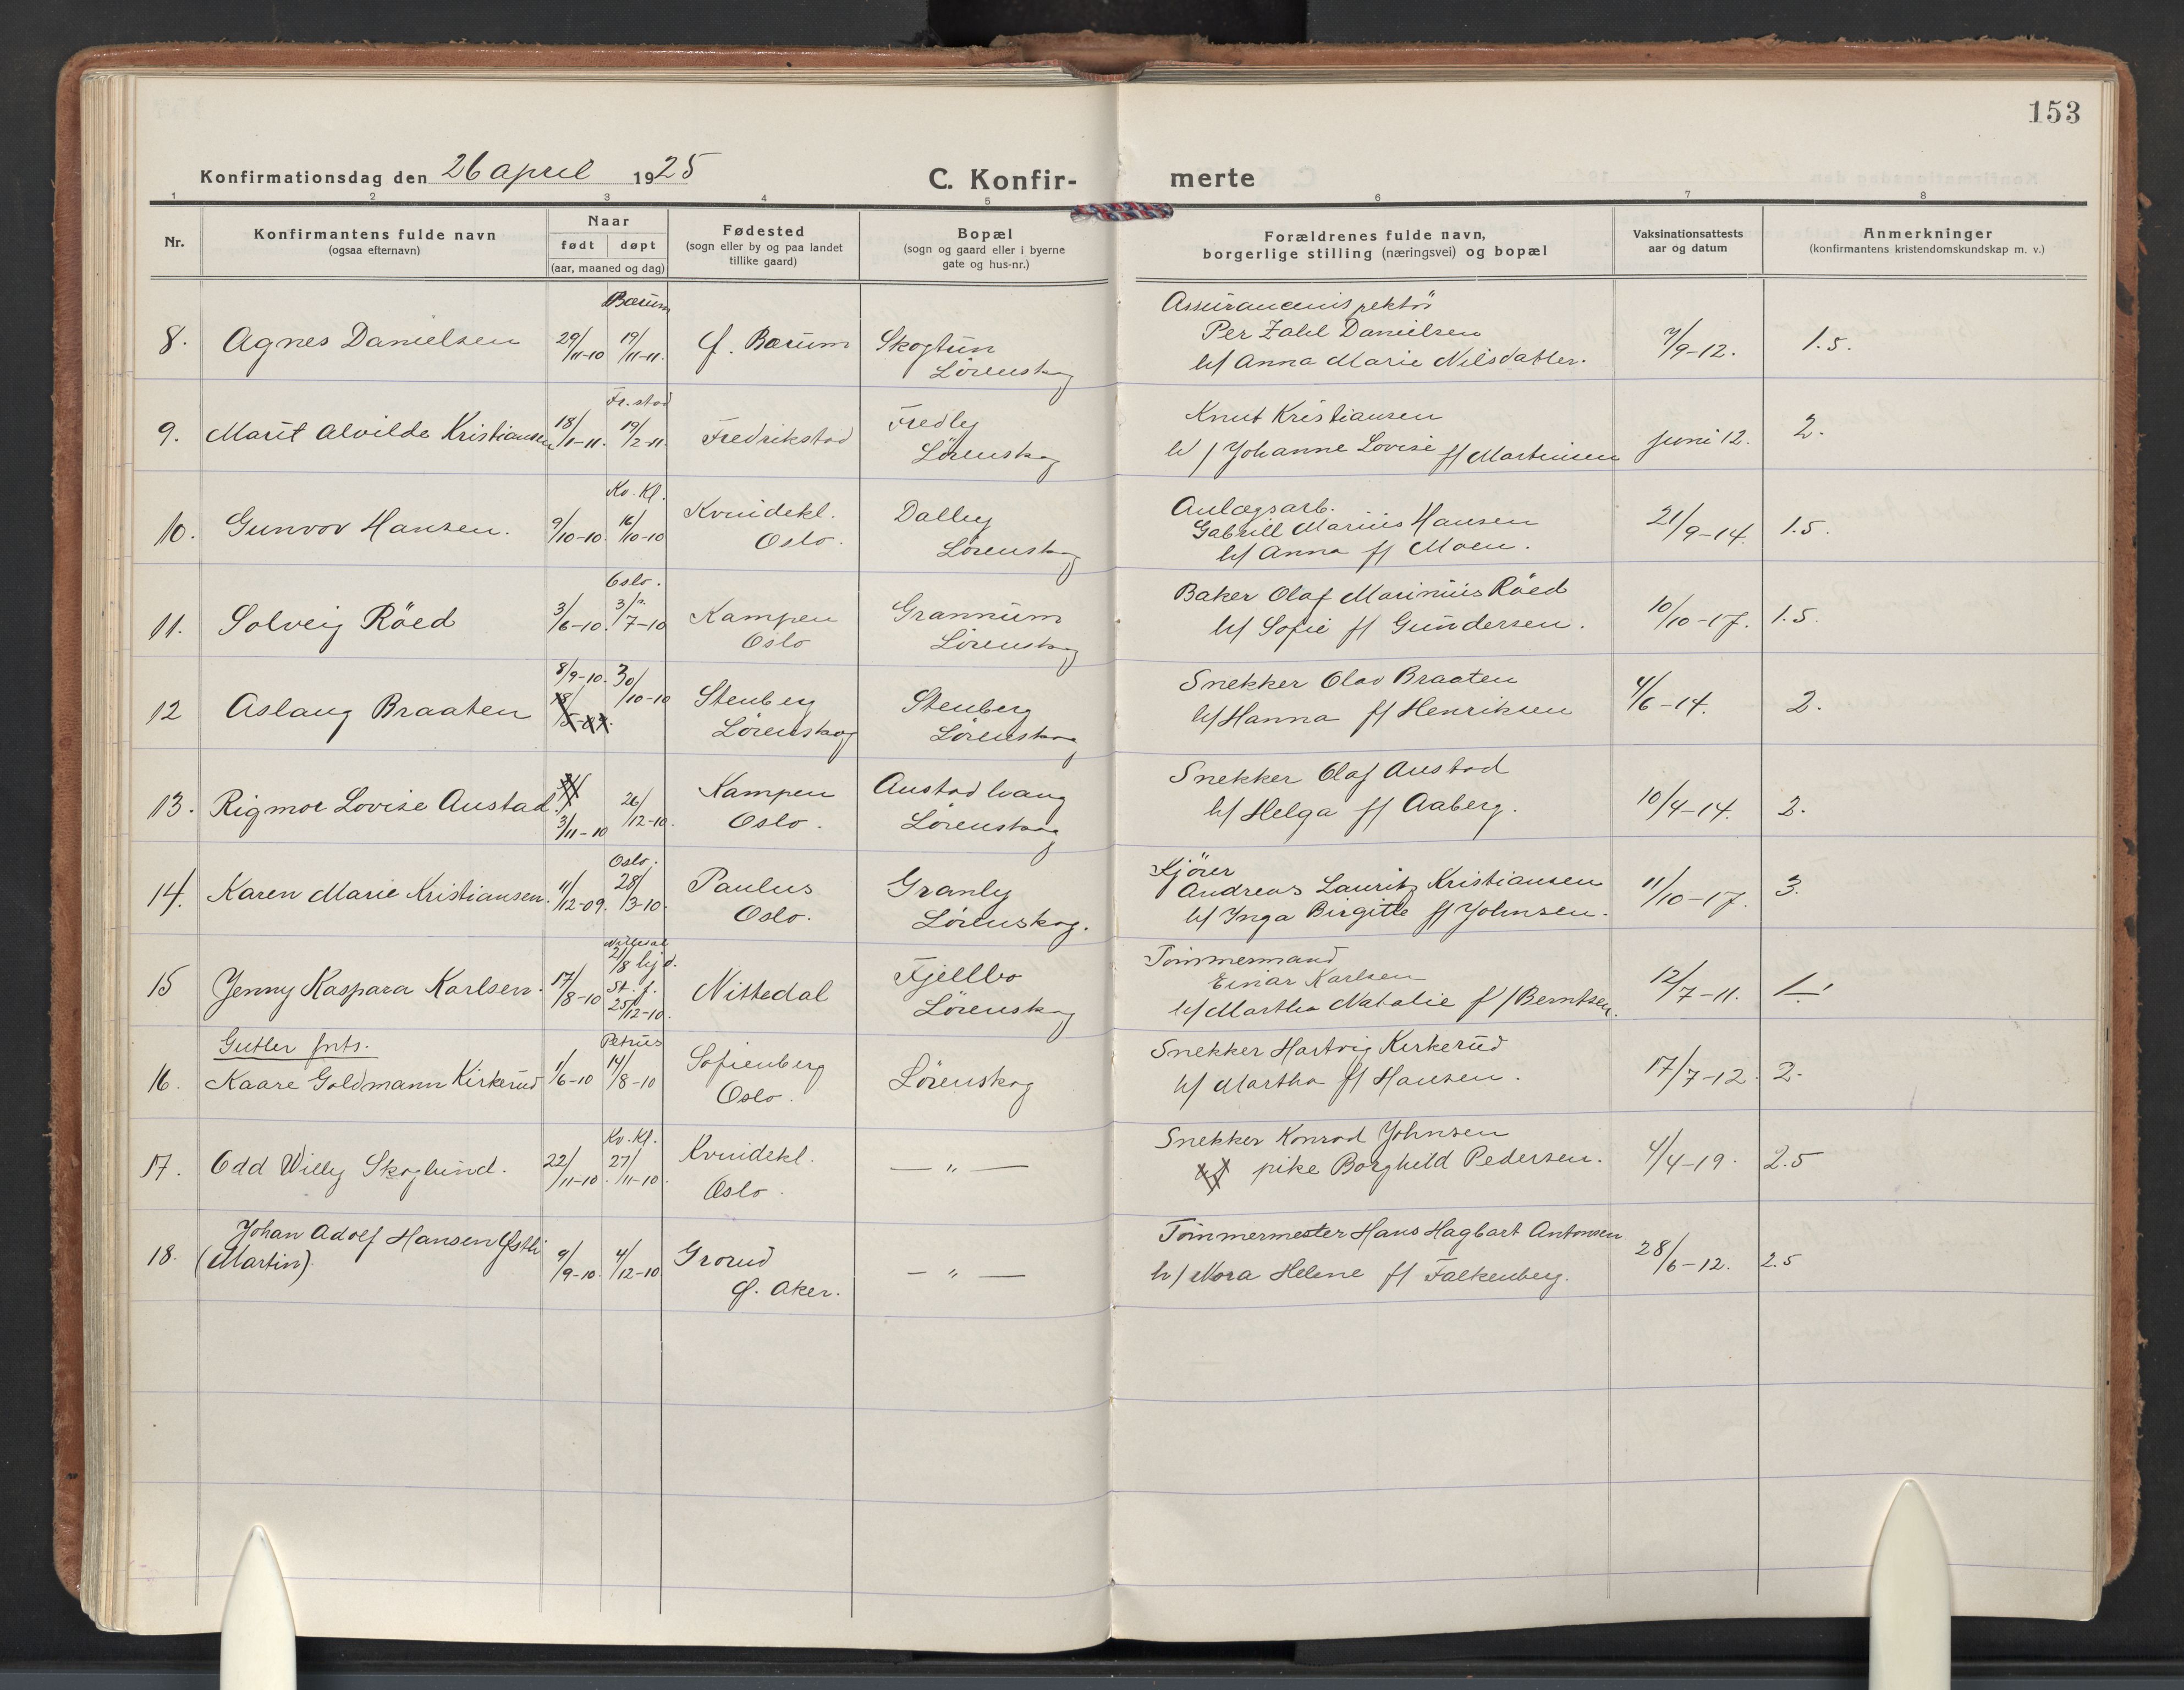 153
Konfirmationsdag den 26 april 1925
C. Konfir-
merte
1 2 3 4 5 6 7 8
Nr.
Konfirmantens fulde navn
(ogsaa efternavn)
Naar
født døpt
(aar, maaned og dag)
Fødested
(sogn eller by og paa landet
tillike gaard)
Bopæl
(sogn og gaard eller i byerne
gate og hus-nr.)
Forældrenes fulde navn,
borgerlige stilling (næringsvei) og bopæl
Vaksinationsattests
aar og datum
Anmerkninger
(konfirmantens kristendomskundskap m. v.)
8. Agnes Danielsen 29/11-10 Bærum 19/11-11. f. Bærum Skogtun
Lørenskog
Assuranceinspektör
Per Zahl Danielsen
h/ Anna Marie Nilsdatter. 7/9-12. 1.5.
9. Marit Alvilde Kristiansen 18/1-11. Fr.stad 19/2-11. Fredrikstad Fredly
Lørenskog
Knut Kristiansen
h/ Johanne Lovise f/ Martinsen juni 12. 2.
10. Gunvor Hansen. 9/10-10. Kv. Kl. 16/10-10 Kvindekl.
Oslo. Dalby
Lørenskog
Anlægsarb.
Gabriell Marius Hansen
h/ Anna f/ Moen. 21/9-14. 1.5.
11. Solveig Röed 3/6-10. Oslo. 3/7-10 Kampen
Oslo Grannum
Lørenskog
Baker Olaf Marinius Röed
h/ Sofie f/ Gundersen. 10/10-17. 1.5.
12 Aslaug Braaten 8/9-10. 30/10-10 Stenberg
Lørenskog Stenberg
Lørenskog
Snekker Olav Braaten
h/ Hanna f/ Henriksen 4/6-14. 2.
13. Rigmor Lovise Austad 3/11-10 26/12-10. Kampen
Oslo. Austad vang
Lørenskog
Snekker Olaf Austad
h/ Helga f/ Aaberg. 10/4-14. 2.
14. Karen Marie Kristiansen. 11/12-09. Oslo. 28/3-10. Paulus
Oslo. Granly
Lørenskog.
Kjörer
Andreas Lauritz Kristiansen
h/ Inga Birgitte f/ Johnsen. 11/10-17. 3.
15 Jenny Kaspara Karlsen. 17/8-10 Nittedal
21/8 hjd.
st. f.
25/12-10. Nittedal Fjellbo
Lørenskog
Tömmermand
Einar Karlsen
h/ Martha Natalie f/ Berntsen. 12/7-11. 1.
Gutter frits.
16. Kaare Goldmann Kirkerud 1/6-10 Petrus 14/8-10 Sofienberg
Oslo. Lørenskog
Snekker Hartvig Kirkerud
h/ Martha f/ Hansen. 17/7-12. 2.
17. Odd Willy Skoglund. 22/11-10. Kv. Kl. 27/11-10. Kvindekl.
Oslo. — " —
Snekker Konrad Johnsen
pike Borghild Pedersen. 4/4-19. 2.5
18. Johan Adolf Hansen Østli
(Martin). 9/9-10. 4/12-10 Grorud
f. Aker. — " —
Tömmermester Hans Hagbart Antonsen
h/ Nora Helene f/ Falkenberg. 28/6-12. 2.5